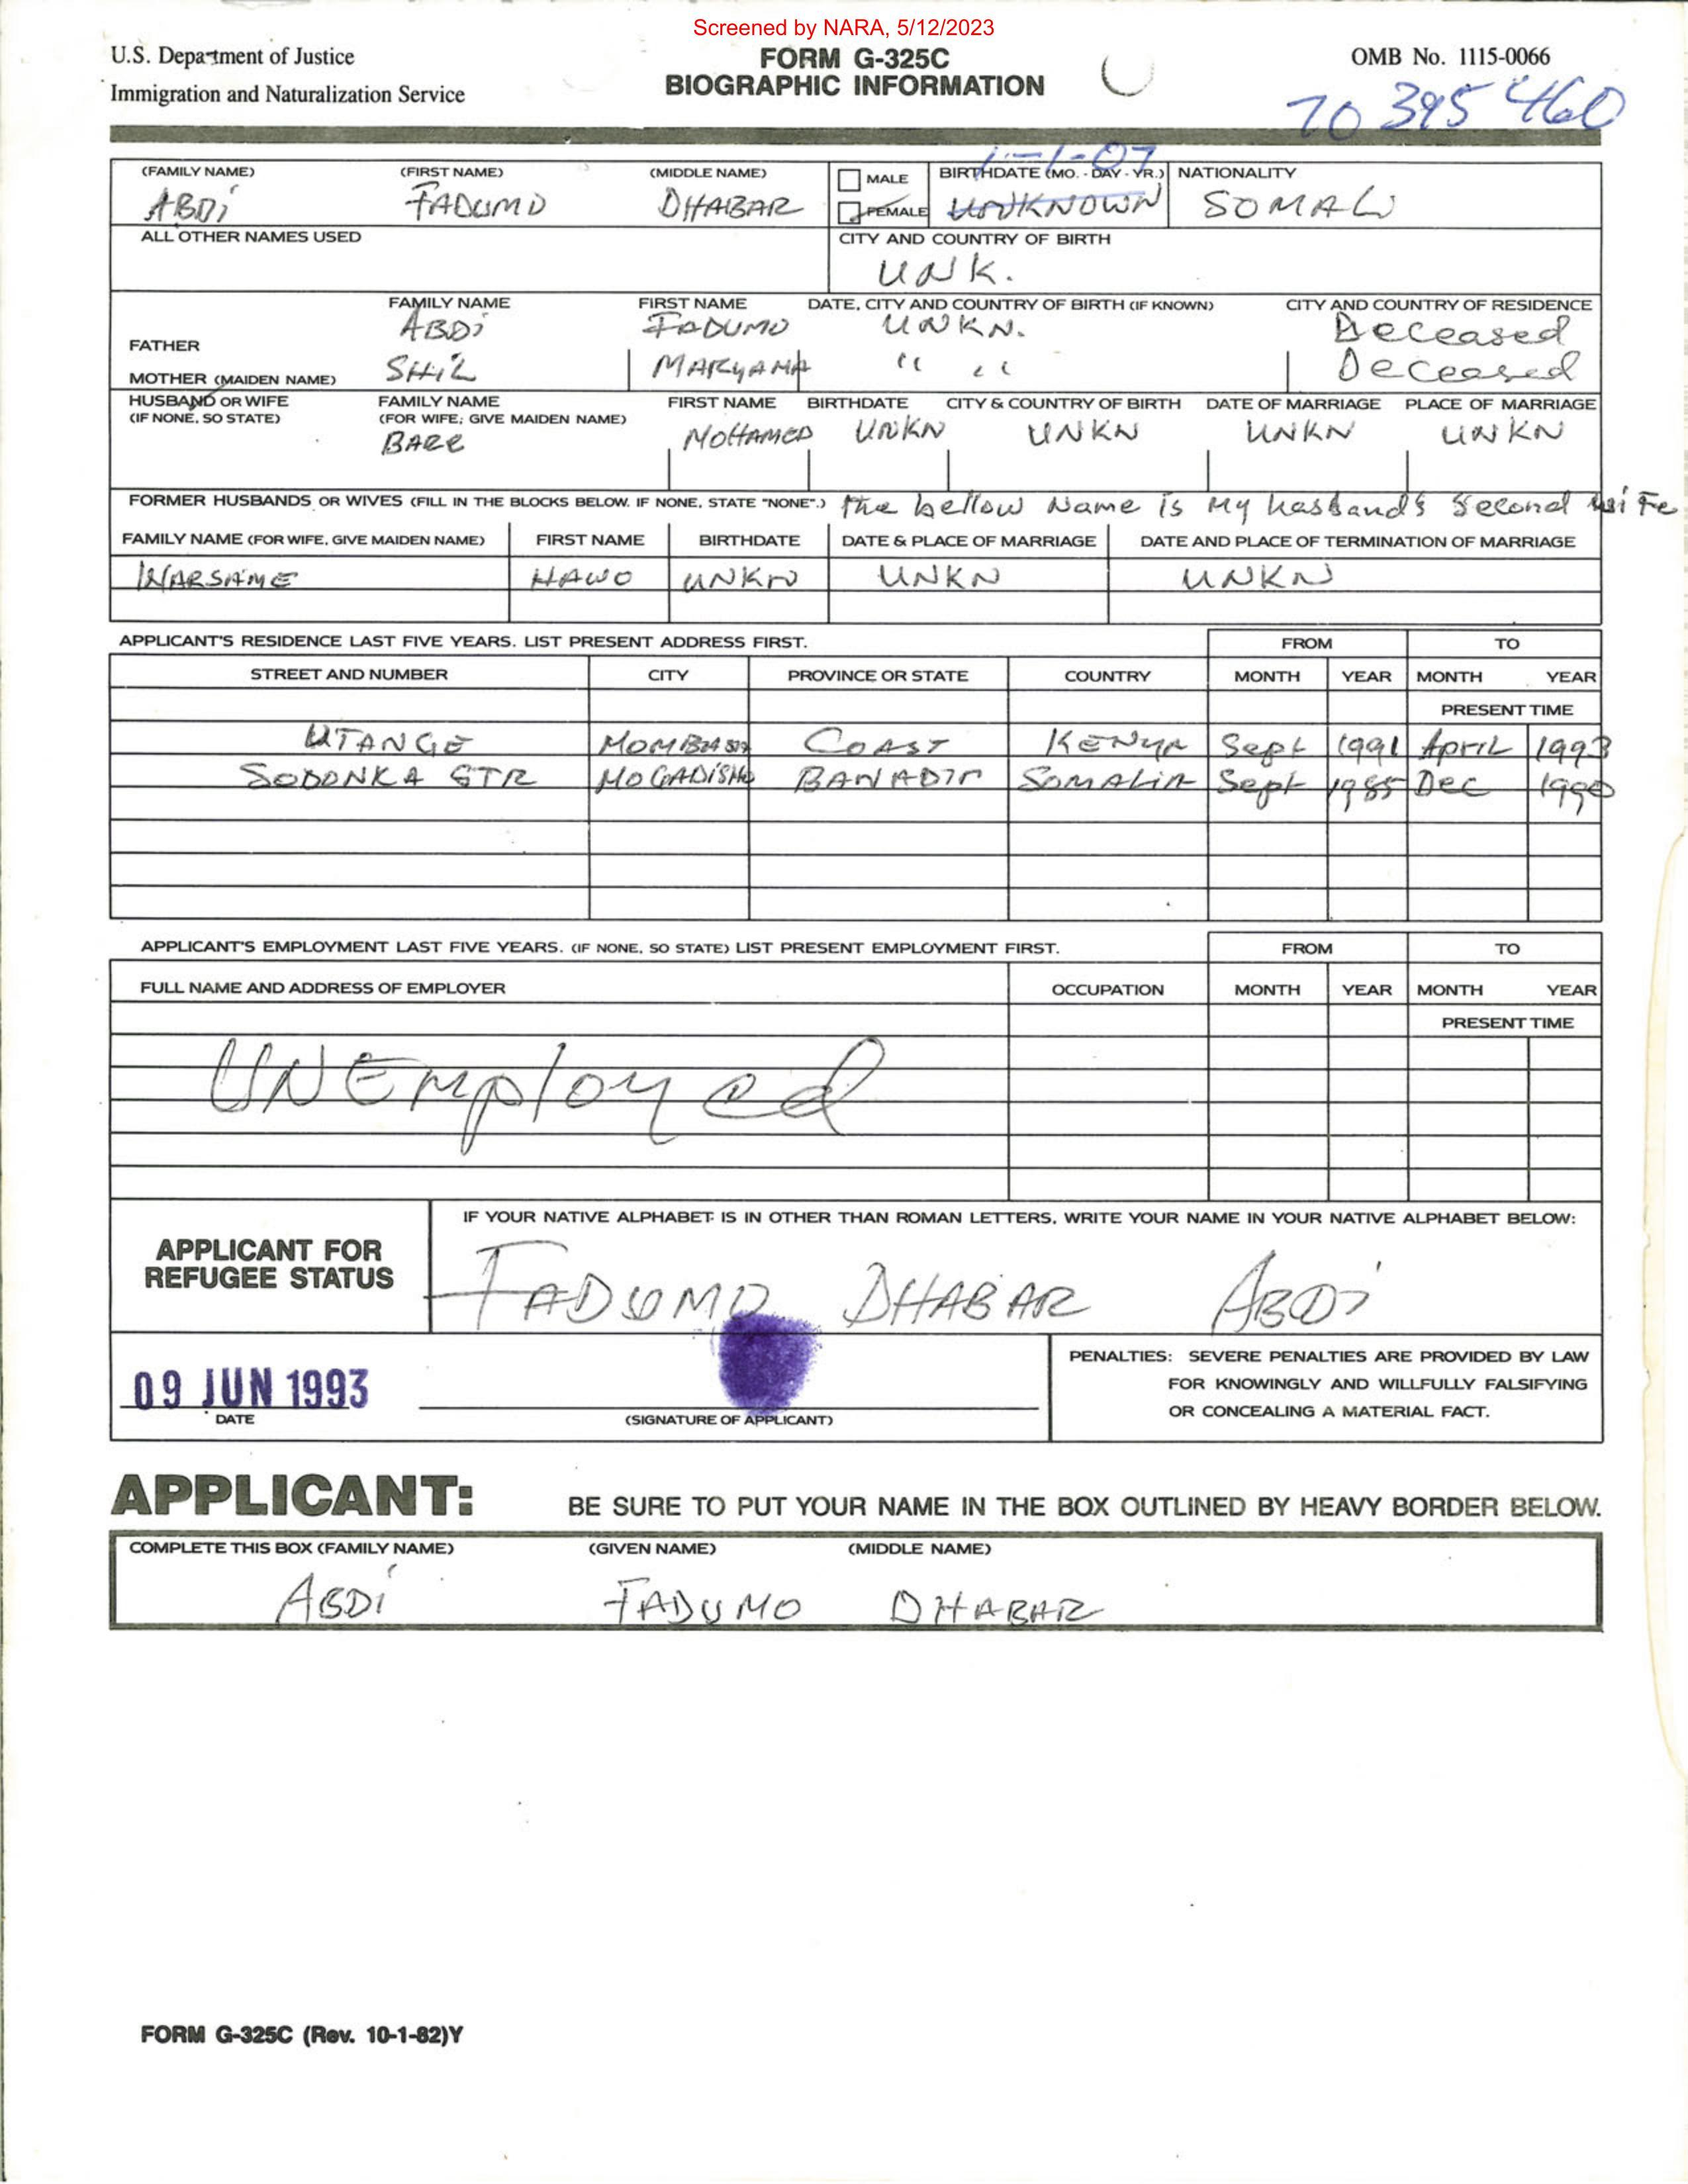 Screened by NARA, 5/12/2023
U.S. Department of Justice
Immigration and Naturalization Service
FORM G-325C
BIOGRAPHIC INFORMATION
OMB No. 1115-0066
70 395 460
(FAMILY NAME) (FIRST NAME) (MIDDLE NAME) MALE BIRTHDATE (MO. - DAY - YR.) NATIONALITY
1-1-07
ABDi FADUMO DHABAR FEMALE UNKNOWN SOMALi
ALL OTHER NAMES USED CITY AND COUNTRY OF BIRTH
UNK.
FAMILY NAME FIRST NAME DATE, CITY AND COUNTRY OF BIRTH (IF KNOWN) CITY AND COUNTRY OF RESIDENCE
FATHER ABDi FADUMO UNKN. Deceased
MOTHER (MAIDEN NAME) SHiL MARYAMA " " Deceased
HUSBAND OR WIFE (IF NONE, SO STATE) FAMILY NAME (FOR WIFE; GIVE MAIDEN NAME) FIRST NAME BIRTHDATE CITY & COUNTRY OF BIRTH DATE OF MARRIAGE PLACE OF MARRIAGE
BARE MOHAMED UNKN UNKN UNKN UNKN
FORMER HUSBANDS OR WIVES (FILL IN THE BLOCKS BELOW. IF NONE, STATE "NONE".) the bellow Name is My hasband's second wiFe
FAMILY NAME (FOR WIFE, GIVE MAIDEN NAME) FIRST NAME BIRTHDATE DATE & PLACE OF MARRIAGE DATE AND PLACE OF TERMINATION OF MARRIAGE
WARSAME HAWO UNKN UNKN UNKN
APPLICANT'S RESIDENCE LAST FIVE YEARS. LIST PRESENT ADDRESS FIRST. FROM TO
STREET AND NUMBER CITY PROVINCE OR STATE COUNTRY MONTH YEAR MONTH YEAR
PRESENT TIME
UTANGE MOMBASA COAST KENYA Sept 1991 ApriL 1993
SODONKA STR MOGADiSHo BANADIR SOMALiA Sept 1985 Dec 1990
APPLICANT'S EMPLOYMENT LAST FIVE YEARS. (IF NONE, SO STATE) LIST PRESENT EMPLOYMENT FIRST. FROM TO
FULL NAME AND ADDRESS OF EMPLOYER OCCUPATION MONTH YEAR MONTH YEAR
PRESENT TIME
UNEmployed
APPLICANT FOR
REFUGEE STATUS
IF YOUR NATIVE ALPHABET IS IN OTHER THAN ROMAN LETTERS, WRITE YOUR NAME IN YOUR NATIVE ALPHABET BELOW:
FADUMO DHABAR ABDi
09 JUN 1993
DATE
(SIGNATURE OF APPLICANT)
PENALTIES: SEVERE PENALTIES ARE PROVIDED BY LAW
FOR KNOWINGLY AND WILLFULLY FALSIFYING
OR CONCEALING A MATERIAL FACT.
APPLICANT: BE SURE TO PUT YOUR NAME IN THE BOX OUTLINED BY HEAVY BORDER BELOW.
COMPLETE THIS BOX (FAMILY NAME) (GIVEN NAME) (MIDDLE NAME)
ABDi FADUMO DHABAR
FORM G-325C (Rev. 10-1-82)Y